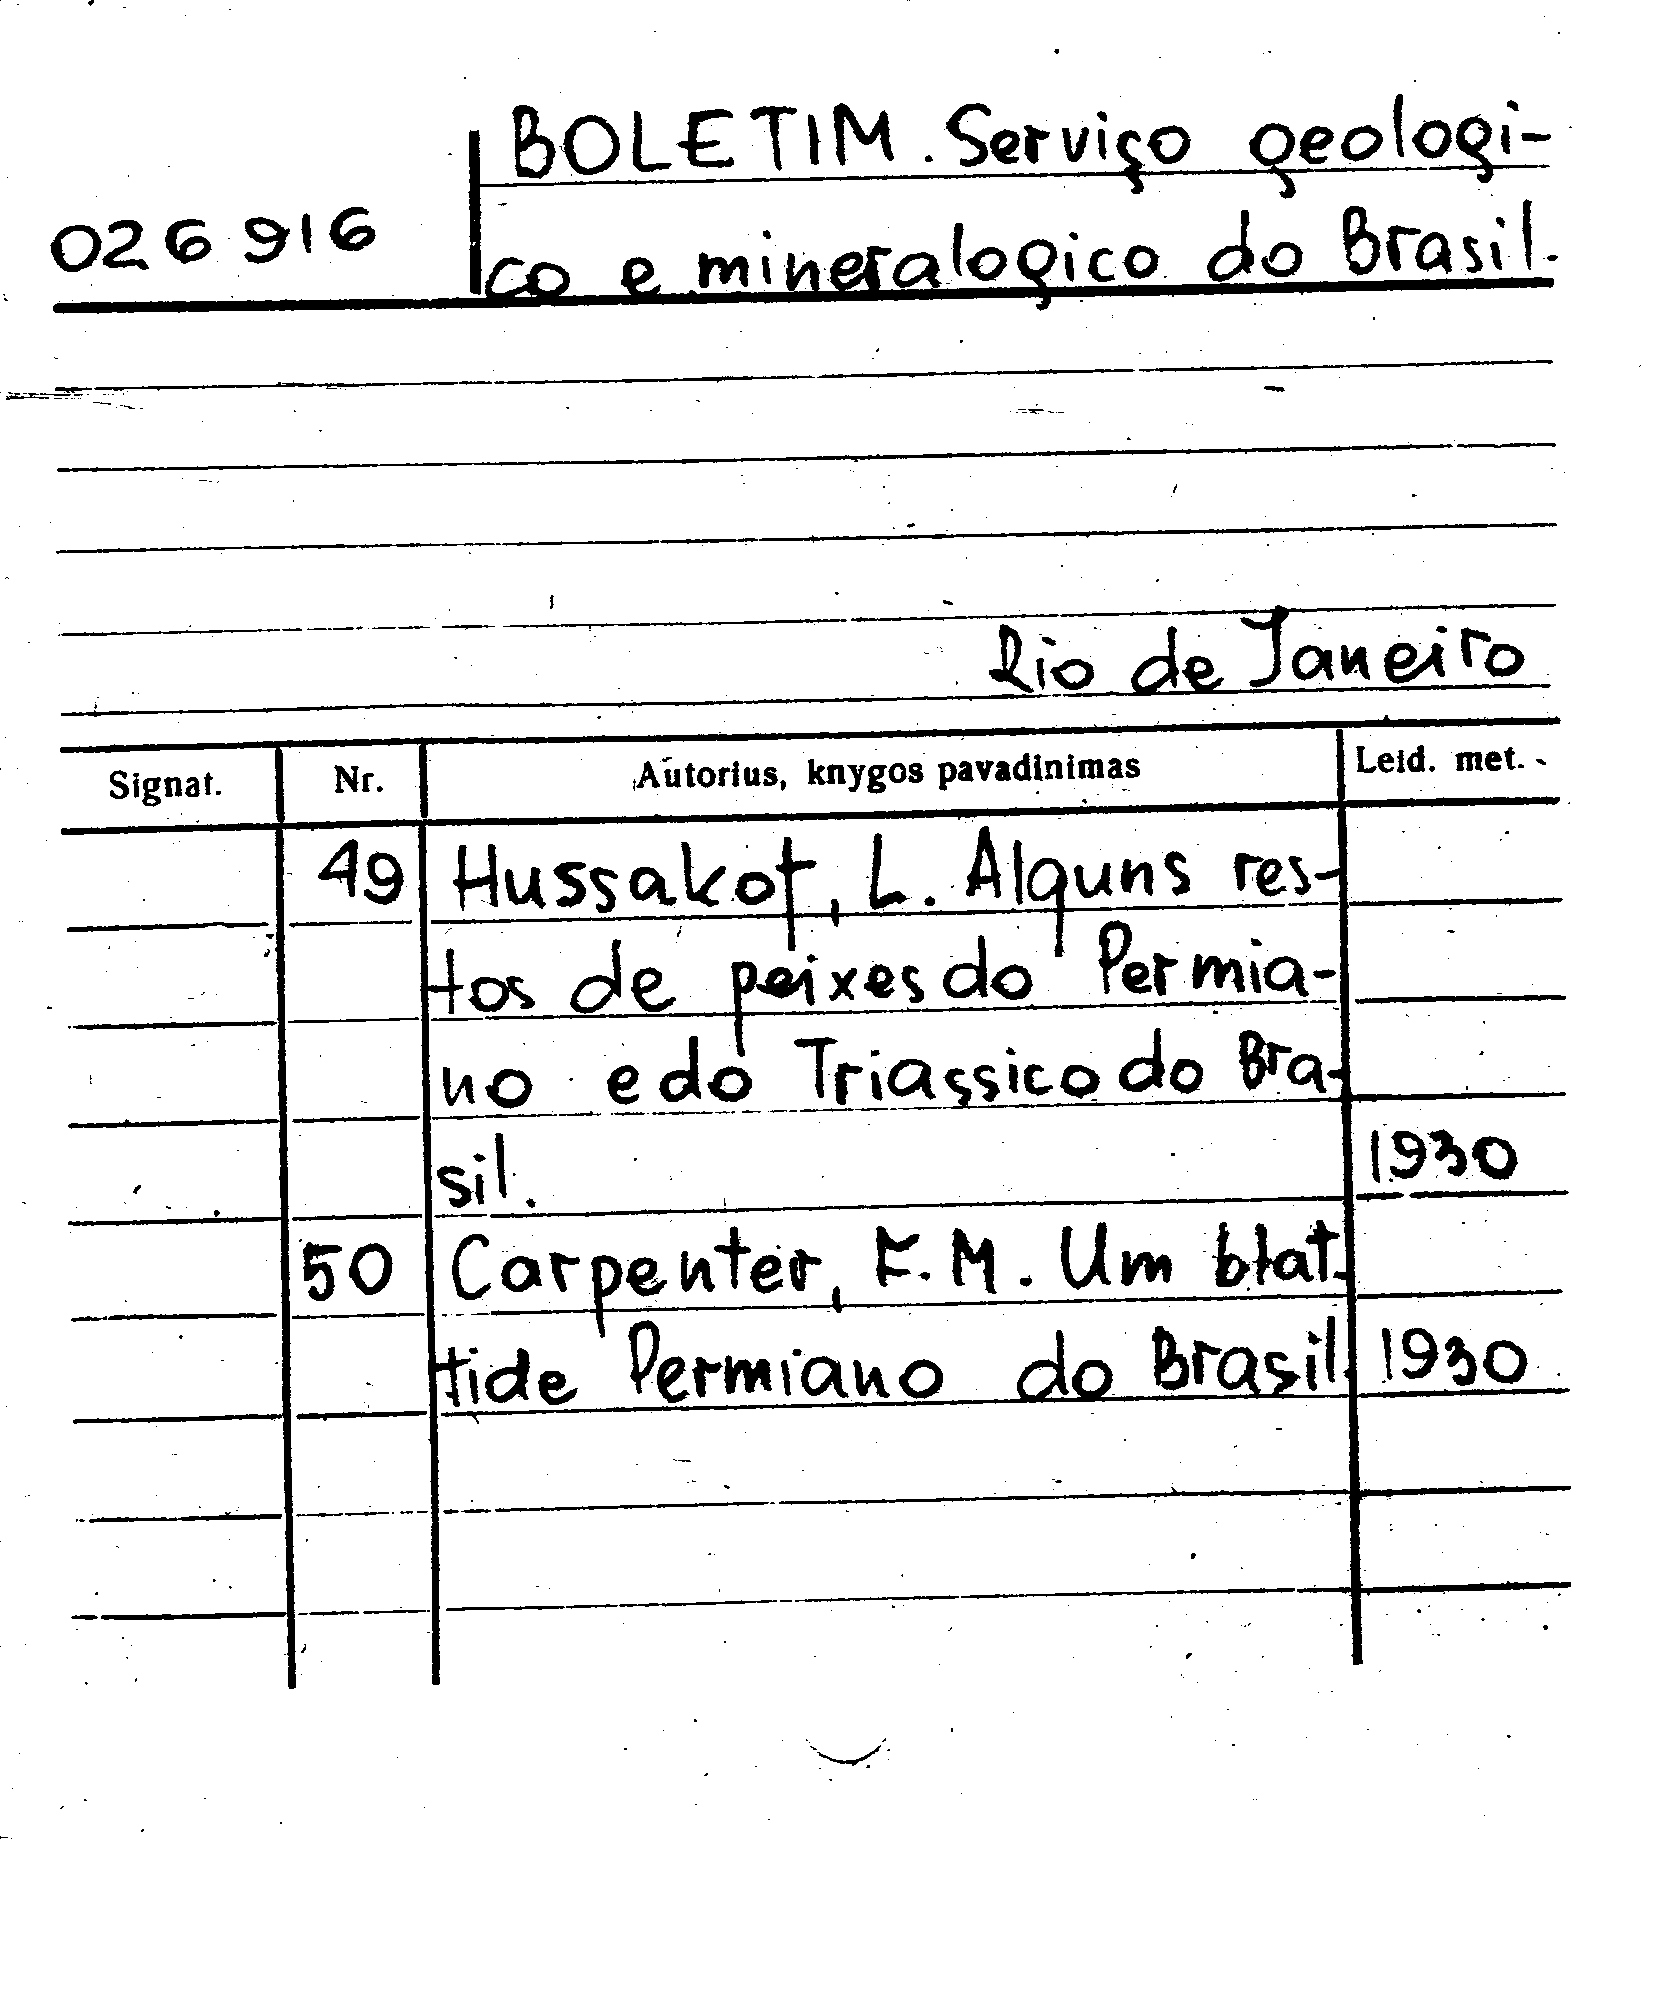 BOLETIM. Serviço geologi-
026 916
co e mineralogico do Brasil.
Rio de Janeiro
Signat. Nr. Autorius, knygos pavadinimas Leid. met.
49 Hussakof, L. Alguns res-
tos de peixes do Permia-
no e do Triassico do Bra-
sil. 1930
50 Carpenter, F. M. Um blat-
tide Permiano do Brasil. 1930